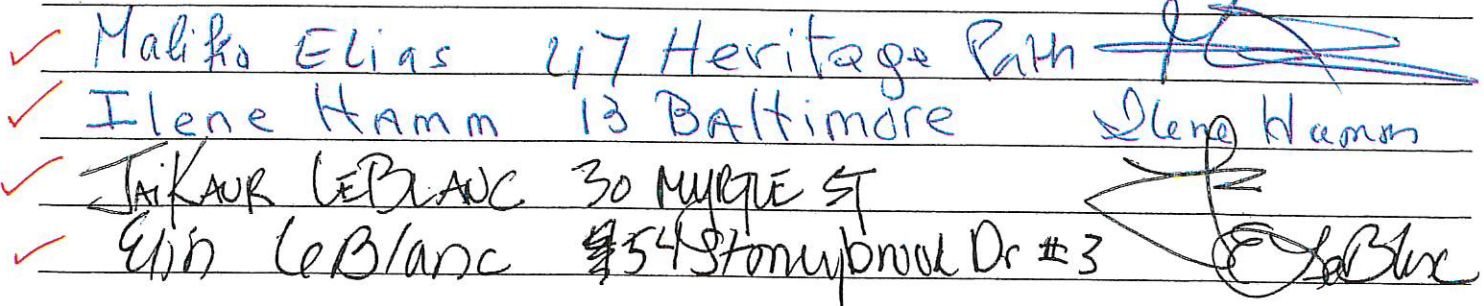 Malika Elias 47 Heritage Path
Ilene Hamm 13 BAltimore Ilene Hamm
JAIKAUR LEBLANC 30 MYRTLE ST
Elin LeBlanc 54 Stonybrook Dr #3 E LeBlanc